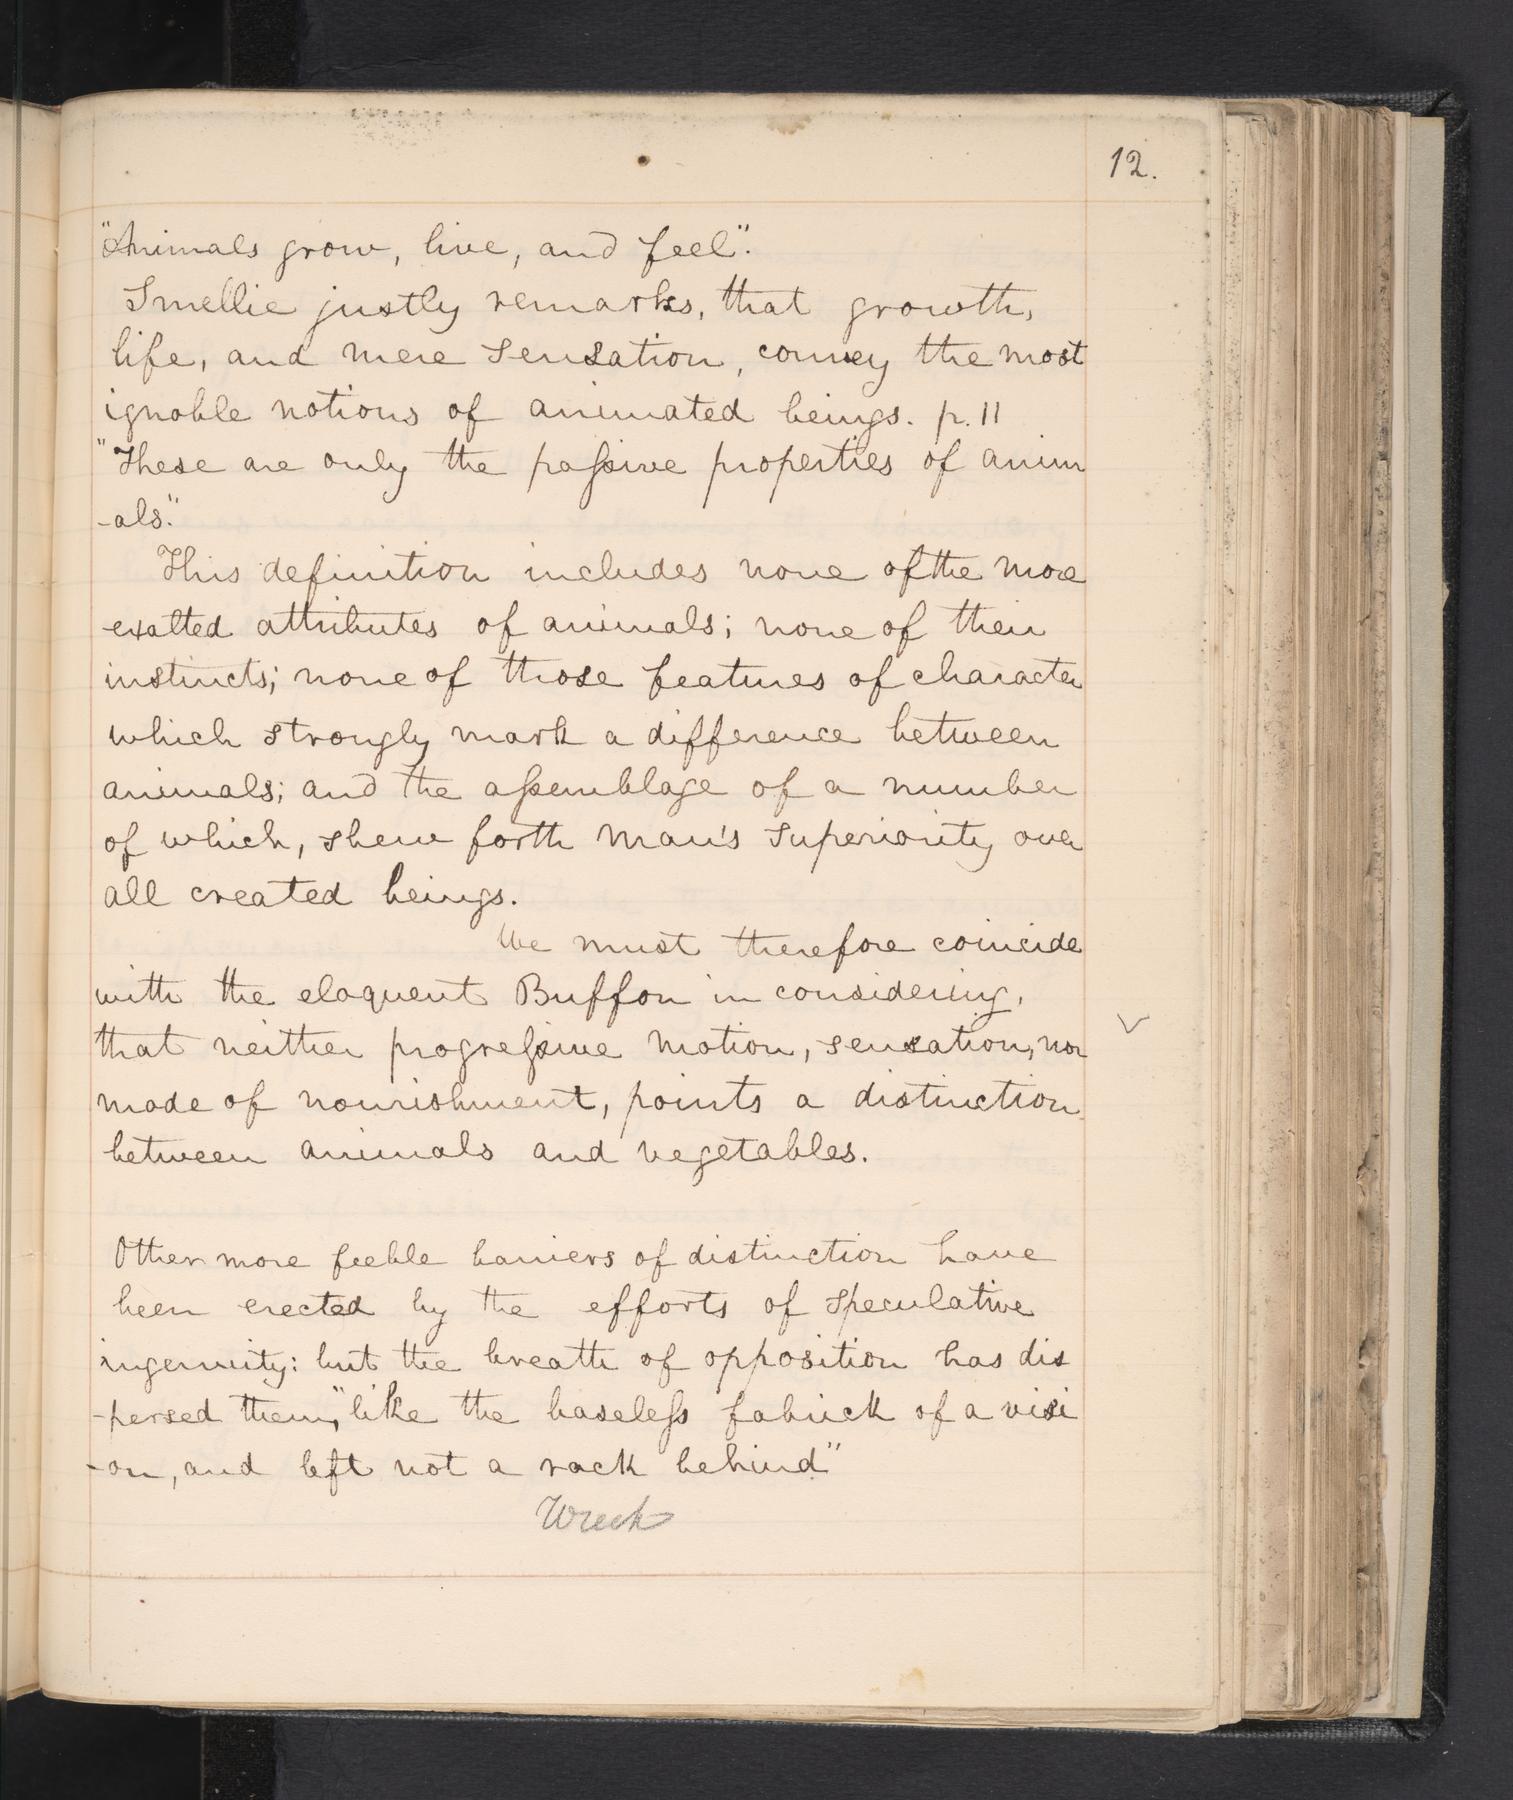 12.
"Animals grow, live, and feel".
Smellie justly remarks, that growth,
life, and mere sensation, convey the most
ignoble notions of animated beings. p. 11
"These are only the paſsive properties of anim
-als."
This definition includes none of the more
exalted attributes of animals; none of their
instincts; none of those features of character
which strongly mark a difference between
animals; and the aſsemblage of a number
of which, shew forth Man's superiority over
all created beings.
We must therefore coincide
with the eloquent Buffon in considering,
that neither progreſsive motion, sensation, nor
mode of nourishment, points a distinction
between animals and vegetables.
Other more feeble barriers of distinction have
been erected by the efforts of speculative
ingenuity: but the breath of opposition has dis
-persed them, "like the baseleſs fabrick of a visi
-on, and left not a rack behind"
Wreck